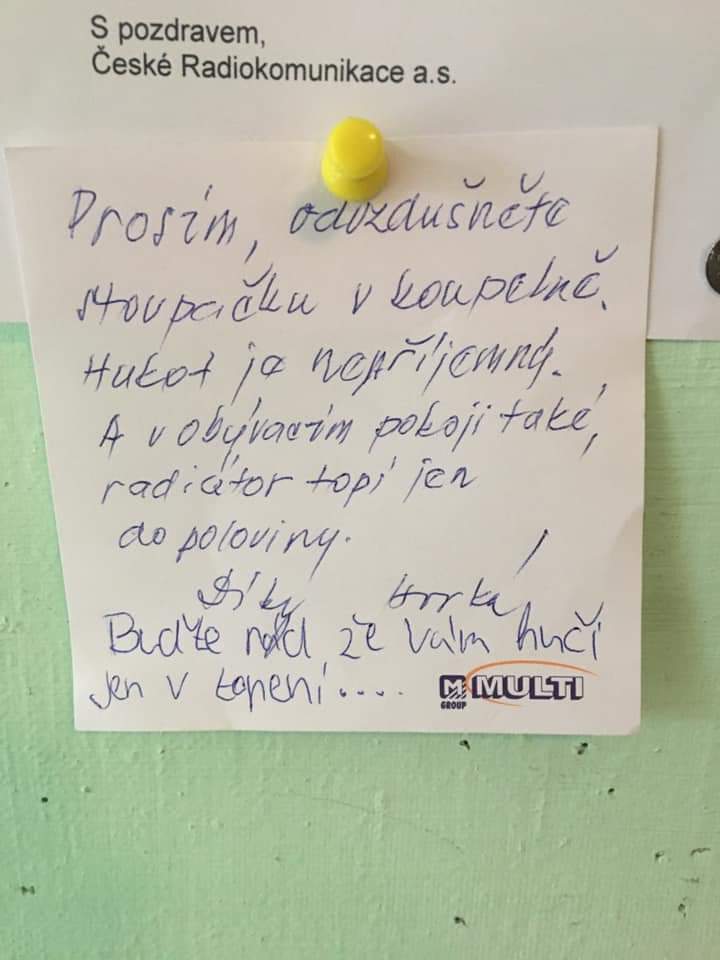 S pozdravem,
České Radiokomunikace a.s.
Prosím, odvzdušněte
stoupačku v koupelně.
Hukot je nepříjemný.
A v obývacím pokoji také,
radiátor topí jen
do poloviny.
Díky Horká
Buďte rád že vám hučí
jen v topení....
M MULTI
GROUP